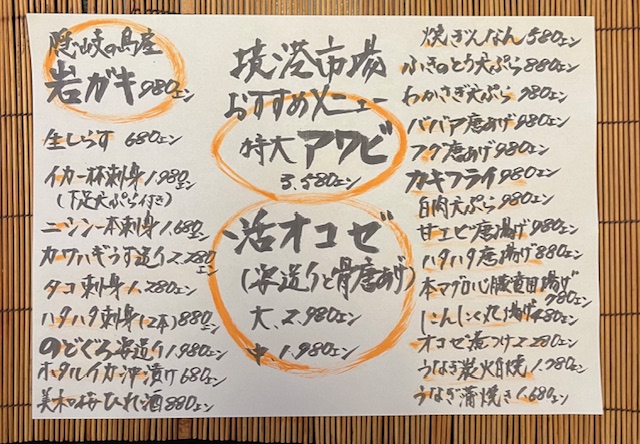 隠岐の島産
岩ガキ 980エン
生しらす 680エン
イカ一杯刺身 1.980エン
(下足天ぷら付き)
ニシン一本刺身 1.680エン
カワハギうす造り 2.280エン
タコ刺身 1.280エン
ハタハタ刺身(2本) 880エン
のどぐろ姿造り 1.980エン
ホタルイカ沖漬け 680エン
美和桜ひれ酒 880エン
境港市場
おすすめメニュー
特大アワビ
3.580エン
活オコゼ
(姿造りと骨唐あげ)
大、2.980エン
中、1.980エン
焼ぎんなん 580エン
ふきのとう天ぷら 880エン
わかさぎ天ぷら 980エン
ババア唐あげ 980エン
フグ唐あげ 980エン
カキフライ 980エン
白肉天ぷら 980エン
甘エビ唐揚げ 980エン
ハタハタ唐揚げ 880エン
本マグロ心臓竜田揚げ
980エン
にんにく丸揚げ 480エン
オコゼ煮つけ 2.280エン
うなぎ炭火白焼 1.780エン
うなぎ蒲焼き 1.680エン